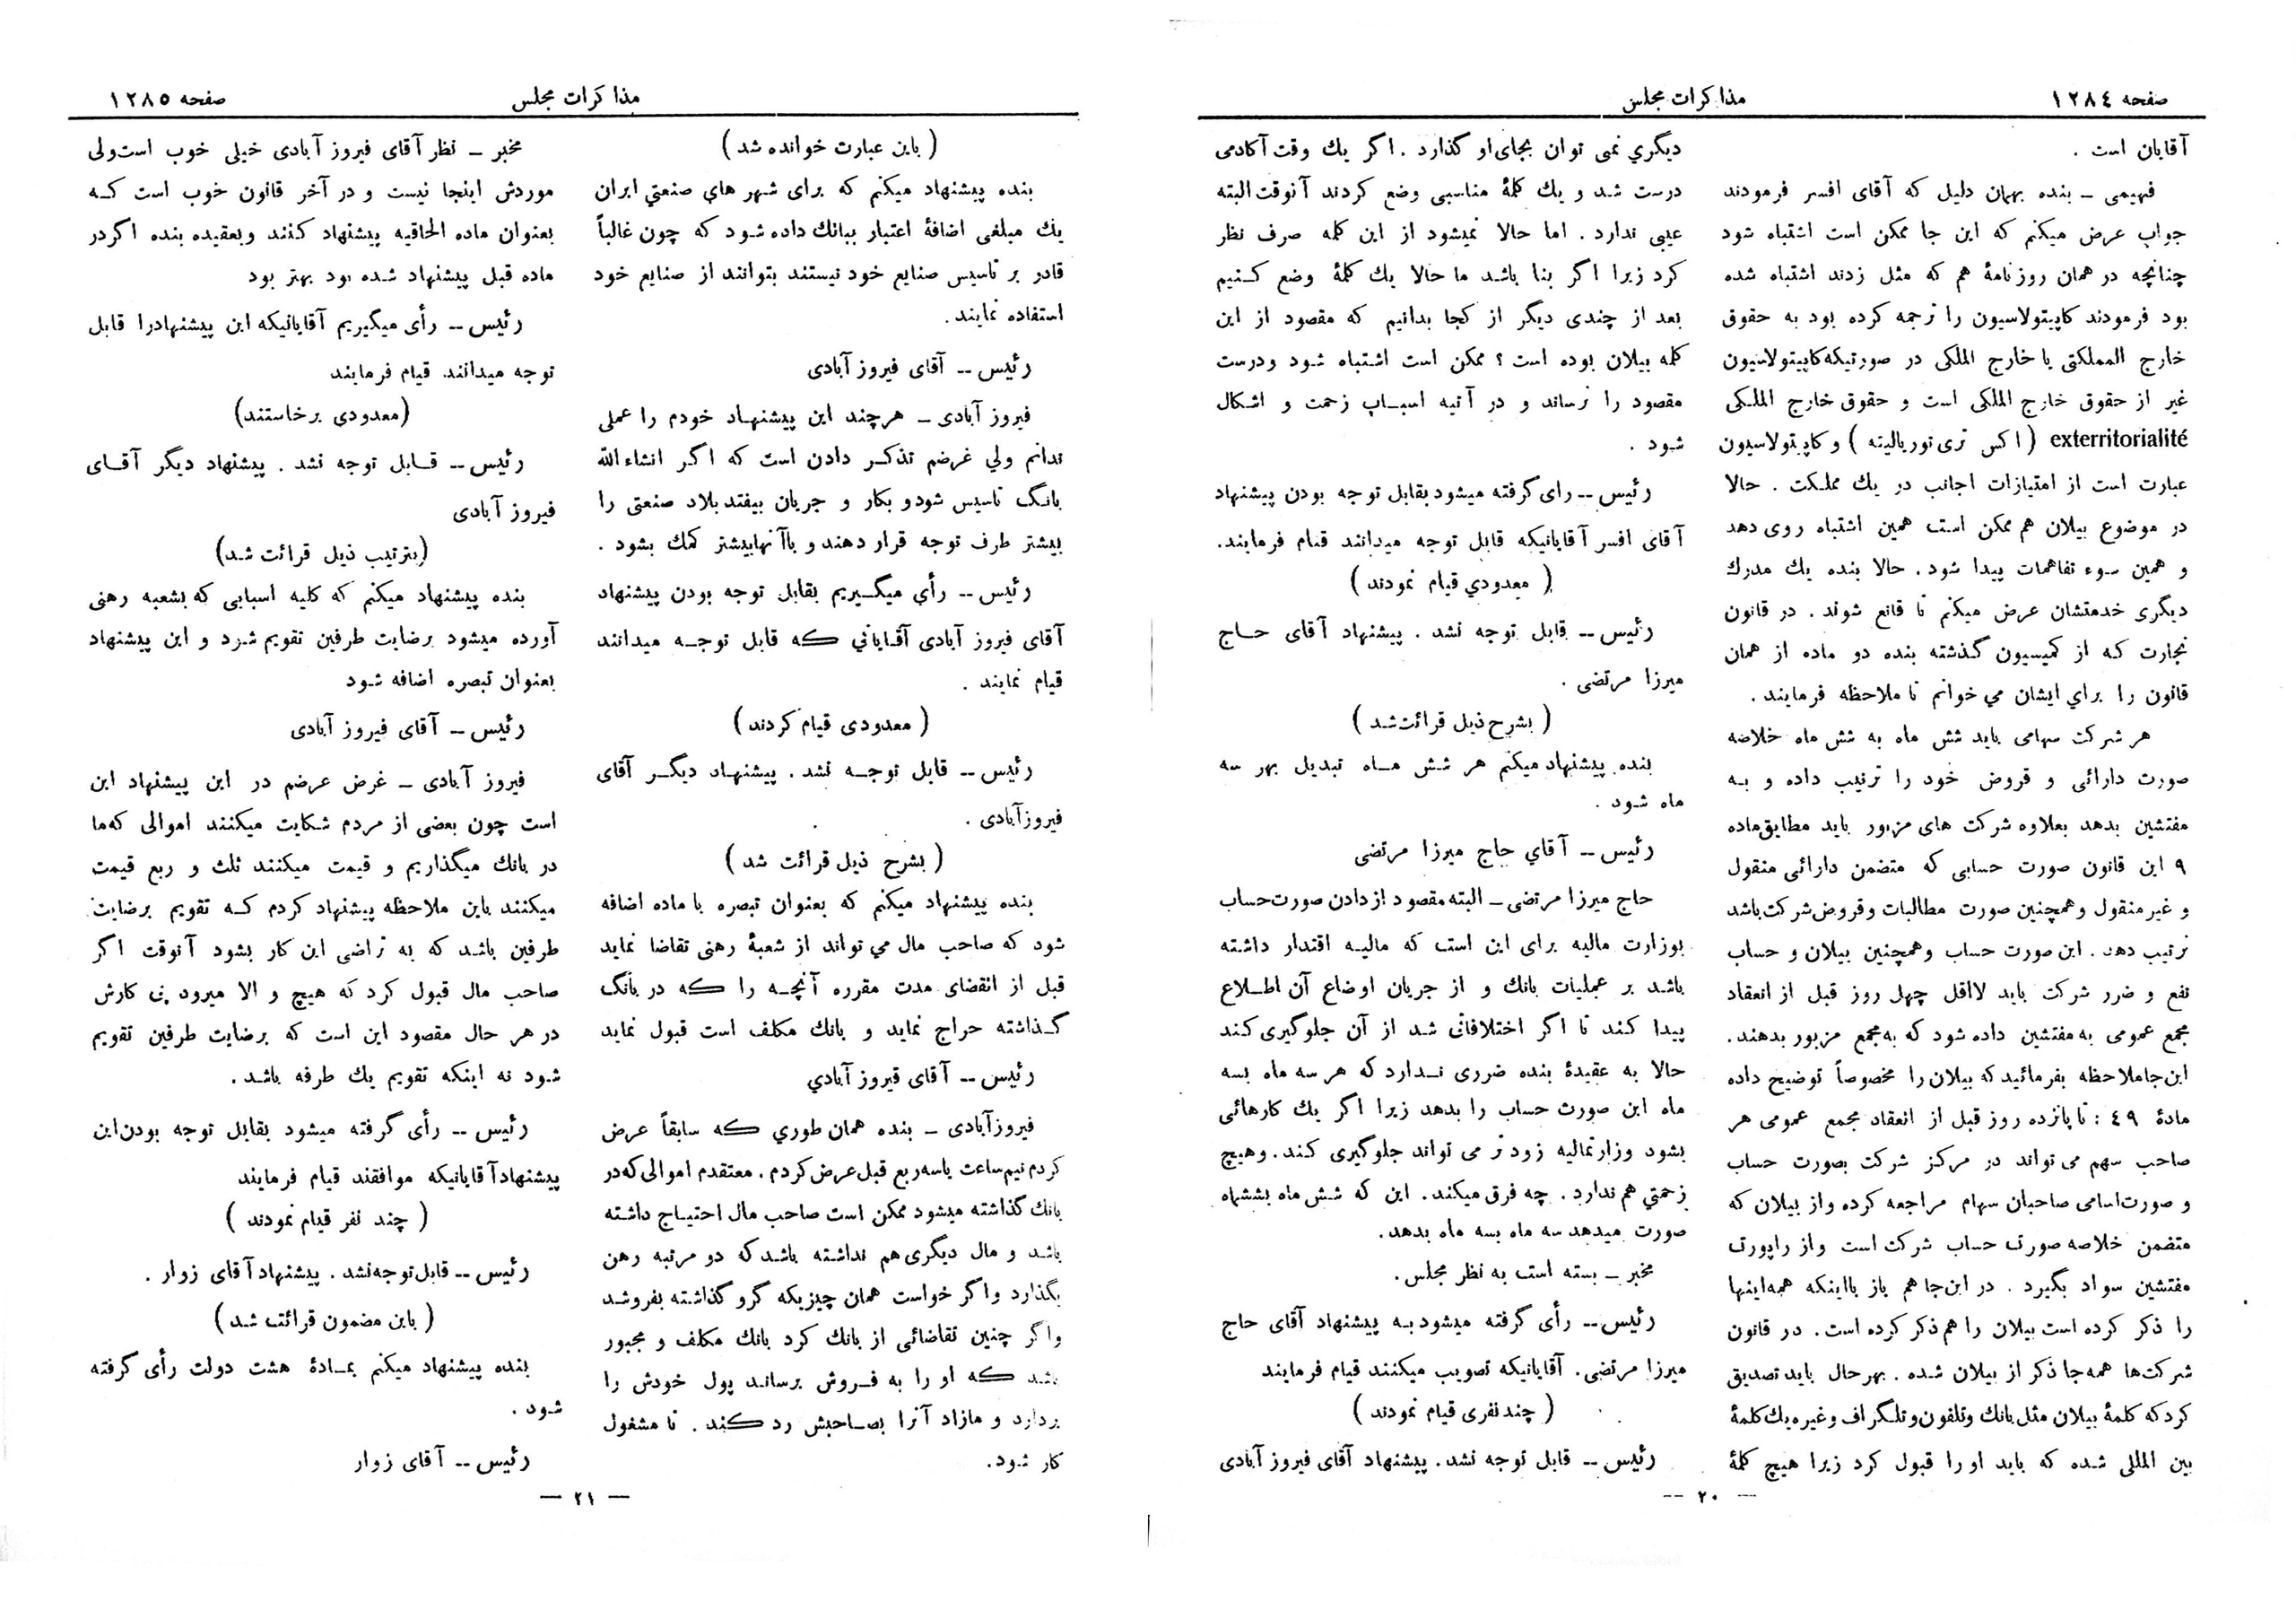 صفحه ۱۲۸٤
مذاکرات مجلس
آقایان است .
فهیمی ــ بنده بهمان دلیل که آقای افسر فرمودند
جواب عرض میکنم که این جا ممکن است اشتباه شود
چنانچه در همان روزنامهٔ هم که مثل زدند اشتباه شده
بود فرمودند کاپیتولاسیون را ترجمه کرده بود به حقوق
خارج المملکتی یا خارج الملکی در صورتیکه کاپیتولاسیون
غیر از حقوق خارج الملکی است و حقوق خارج الملکی
exterritorialité ( اکس تری توریالیته ) و کاپیتولاسیون
عبارت است از امتیازات اجانب در یك مملکت . حالا
در موضوع بیلان هم ممکن است همین اشتباه روی دهد
و همین سوء تفاهمات پیدا شود . حالا بنده یك مدرك
دیگری خدمتشان عرض میکنم تا قانع شوند . در قانون
تجارت که از کمیسیون گذشته بنده دو ماده از همان
قانون را براي ایشان می خوانم تا ملاحظه فرمایند .
هر شرکت سهامی باید شش ماه به شش ماه خلاصه
صورت دارائی و قروض خود را ترتیب داده و به
مفتشین بدهد بعلاوه شرکت های مزبور باید مطابق ماده
۹ این قانون صورت حسابی که متضمن دارائی منقول
و غیر منقول و همچنین صورت مطالبات و قروض شرکت باشد
ترتیب دهد . این صورت حساب و همچنین بیلان و حساب
نفع و ضرر شرکت باید لااقل چهل روز قبل از انعقاد
مجمع عمومی به مفتشین داده شود که به مجمع مزبور بدهند .
این جا ملاحظه بفرمائید که بیلان را مخصوصاً توضیح داده
مادهٔ ٤۹ : تا پانزده روز قبل از انعقاد مجمع عمومی هر
صاحب سهم می تواند در مرکز شرکت بصورت حساب
و صورت اسامی صاحبان سهام مراجعه کرده و از بیلان که
متضمن خلاصه صورت حساب شرکت است و از راپورت
مفتشین سواد بگیرد . در این جا هم باز با اینکه همه اینها
را ذکر کرده است بیلان را هم ذکر کرده است . در قانون
شرکت‌ها همه جا ذکر از بیلان شده . بهر حال باید تصدیق
کرد که کلمهٔ بیلان مثل بانك و تلفون و تلگراف و غیره یك کلمهٔ
بین المللی شده که باید او را قبول کرد زیرا هیچ کلمهٔ
دیگري نمی توان بجای او گذارد . اگر یك وقت آکادمی
درست شد و یك کلمهٔ مناسبی وضع کردند آنوقت البته
عیبی ندارد . اما حالا نمیشود از این کلمه صرف نظر
کرد زیرا اگر بنا باشد ما حالا یك کلمهٔ وضع کنیم
بعد از چندی دیگر از کجا بدانیم که مقصود از این
کلمه بیلان بوده است ؟ ممکن است اشتباه شود و درست
مقصود را نرساند و در آتیه اسباب زحمت و اشکال
شود .
رئیس -- رای گرفته میشود بقابل توجه بودن پیشنهاد
آقای افسر آقایانیکه قابل توجه میدانند قیام فرمایند.
( معدودي قیام نمودند )
رئیس -- قابل توجه نشد . پیشنهاد آقای حاج
میرزا مرتضی .
( بشرح ذیل قرائت شد )
بنده پیشنهاد میکنم هر شش ماه تبدیل بهر سه
ماه شود .
رئیس -- آقاي حاج میرزا مرتضی
حاج میرزا مرتضی ــ البته مقصود از دادن صورت حساب
بوزارت مالیه برای این است که مالیه اقتدار داشته
باشد بر عملیات بانك و از جریان اوضاع آن اطلاع
پیدا کند تا اگر اختلافاتی شد از آن جلوگیری کند
حالا به عقیدهٔ بنده ضرری ندارد که هر سه ماه بسه
ماه این صورت حساب را بدهد زیرا اگر یك کارهائی
بشود وزارتمالیه زود تر می تواند جلوگیری کند . وهیچ
زحمتي هم ندارد . چه فرق میکند . این که شش ماه بششماه
صورت میدهد سه ماه بسه ماه بدهد.
مخبر ــ بسته است به نظر مجلس .
رئیس -- رأی گرفته میشود به پیشنهاد آقای حاج
میرزا مرتضی . آقایانیکه تصویب میکنند قیام فرمایند
( چند نفری قیام نمودند )
رئیس -- قابل توجه نشد . پیشنهاد آقای فیروز آبادی
— ۲۰ —
مذاکرات مجلس
صفحه ۱۲۸۵
( باین عبارت خوانده شد )
بنده پیشنهاد میکنم که برای شهر هاي صنعتي ایران
یك مبلغی اضافهٔ اعتبار ببانك داده شود که چون غالباً
قادر بر تاسیس صنایع خود نیستند بتوانند از صنایع خود
استفاده نمایند .
رئیس -- آقای فیروز آبادی
فیروز آبادی ــ هرچند این پیشنهاد خودم را عملی
ندانم ولي غرضم تذکر دادن است که اگر انشاءالله
بانگ تاسیس شود و بکار و جریان بیفتد بلاد صنعتی را
بیشتر طرف توجه قرار دهند و باآنها بیشتر کمك بشود .
رئیس -- رأي میگیریم بقابل توجه بودن پیشنهاد
آقای فیروز آبادی آقایاني که قابل توجه میدانند
قیام نمایند .
( معدودی قیام کردند )
رئیس -- قابل توجه نشد . پیشنهاد دیگر آقای
فیروزآبادی .
( بشرح ذیل قرائت شد )
بنده پیشنهاد میکنم که بعنوان تبصره با ماده اضافه
شود که صاحب مال می تواند از شعبهٔ رهنی تقاضا نماید
قبل از انقضای مدت مقرره آنچه را که در بانگ
گذاشته حراج نماید و بانك مکلف است قبول نماید
رئیس -- آقای فیروز آبادي
فیروزآبادی ــ بنده همان طوري که سابقاً عرض
کردم نیم ساعت یا سه ربع قبل عرض کردم . معتقدم اموالی که در
بانك گذاشته میشود ممکن است صاحب مال احتیاج داشته
باشد و مال دیگری هم نداشته باشد که دو مرتبه رهن
بگذارد و اگر خواست همان چیزیکه گرو گذاشته بفروشد
و اگر چنین تقاضائی از بانك کرد بانك مکلف و مجبور
باشد که او را به فروش برساند پول خودش را
بردارد و مازاد آنرا بصاحبش رد کند . تا مشغول
کار شود.
مخبر ــ نظر آقای فیروز آبادی خیلی خوب است ولی
موردش اینجا نیست و در آخر قانون خوب است که
بعنوان ماده الحاقیه پیشنهاد کنند وبعقیده بنده اگر در
ماده قبل پیشنهاد شده بود بهتر بود
رئیس -- رأی میگیریم آقایانیکه این پیشنهادرا قابل
توجه میدانند قیام فرمایند
(معدودی برخاستند)
رئیس -- قابل توجه نشد . پیشنهاد دیگر آقای
فیروز آبادی
(بترتیب ذیل قرائت شد)
بنده پیشنهاد میکنم که کلیه اسبابی که بشعبه رهنی
آورده میشود برضایت طرفین تقویم شود و این پیشنهاد
بعنوان تبصره اضافه شود
رئیس -- آقای فیروز آبادی
فیروز آبادی ــ غرض عرضم در این پیشنهاد این
است چون بعضی از مردم شکایت میکنند اموالی که ما
در بانك میگذاریم و قیمت میکنند ثلث و ربع قیمت
میکنند باین ملاحظه پیشنهاد کردم که تقویم برضایت
طرفین باشد که به تراضی این کار بشود آنوقت اگر
صاحب مال قبول کرد که هیچ و الا میرود پی کارش
در هر حال مقصود این است که برضایت طرفین تقویم
شود نه اینکه تقویم یك طرفه باشد .
رئیس -- رأی گرفته میشود بقابل توجه بودن این
پیشنهاد آقایانیکه موافقند قیام فرمایند
( چند نفر قیام نمودند )
رئیس -- قابل توجه نشد . پیشنهاد آقای زوار .
( باین مضمون قرائت شد )
بنده پیشنهاد میکنم بمادهٔ هشت دولت رأی گرفته
شود .
رئیس -- آقای زوار
— ۲۱ —